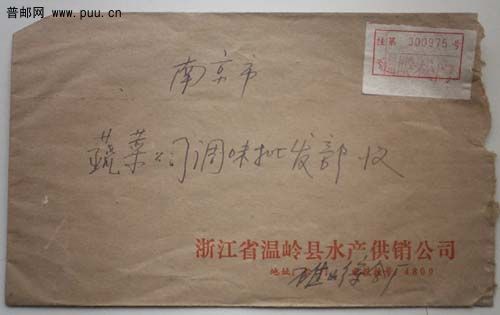 普邮网 www.puu.cn
挂第 300975 号
南京市
蔬菜公司调味批发部收
浙江省温岭县水产供销公司
地址
4800